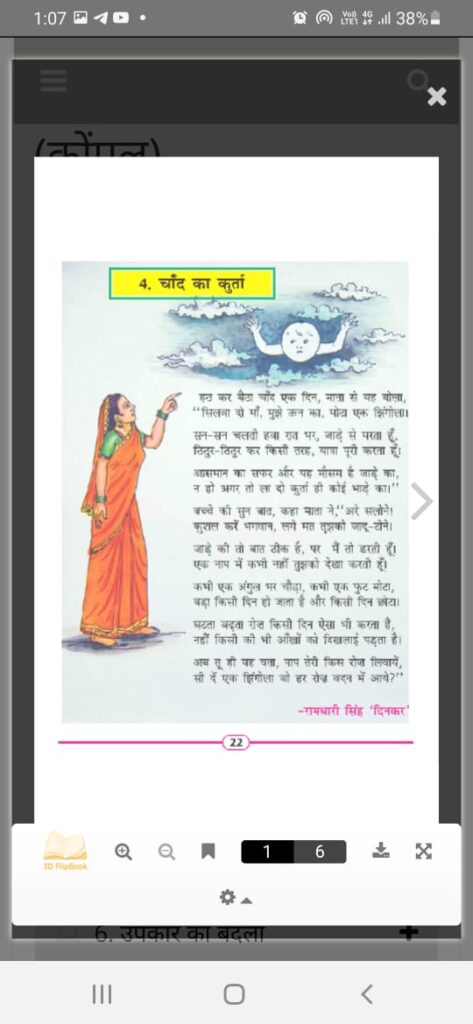 1:07
Vo)) 4G
LTE1
38%
(कोंपल)
4. चाँद का कुर्ता
हठ कर बैठा चाँद एक दिन, माता से यह बोला,
"सिलवा दो माँ, मुझे ऊन का, मोटा एक झिंगोला।
सन-सन चलती हवा रात भर, जाड़े से मरता हूँ,
ठिठुर-ठिठुर कर किसी तरह, यात्रा पूरी करता हूँ।
आसमान का सफर और यह मौसम है जाड़े का,
न हो अगर तो ला दो कुर्ता ही कोई भाड़े का।"
बच्चे की सुन बात, कहा माता ने, "अरे सलोने!
कुशल करें भगवान, लगे मत तुझको जादू-टोने।
जाड़े की तो बात ठीक है, पर मैं तो डरती हूँ।
एक नाप में कभी नहीं तुझको देखा करती हूँ।
कभी एक अंगुल भर चौड़ा, कभी एक फुट मोटा,
बड़ा किसी दिन हो जाता है और किसी दिन छोटा।
घटता बढ़ता रोज़ किसी दिन ऐसा भी करता है,
नहीं किसी की भी आँखों को दिखलाई पड़ता है।
अब तू ही यह बता, नाप तेरी किस रोज़ लिवायें,
सी दें एक झिंगोला जो हर रोज़ बदन में आये?"
-रामधारी सिंह 'दिनकर'
22
3D FlipBook
1 6
6. उपकार का बदला